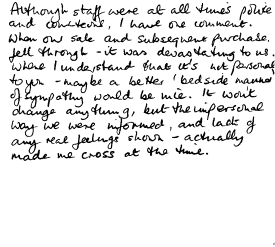 Although staff were at all times polite
and courteous, I have one comment.
When our sale and subsequent purchase
fell through - it was devastating to us.
Where I understand that it's not personal
to you - maybe a better 'bedside manner'
of sympathy would be nice. It won't
change anything, but the impersonal
way we were informed, and lack of
any real feelings shown - actually
made me cross at the time.